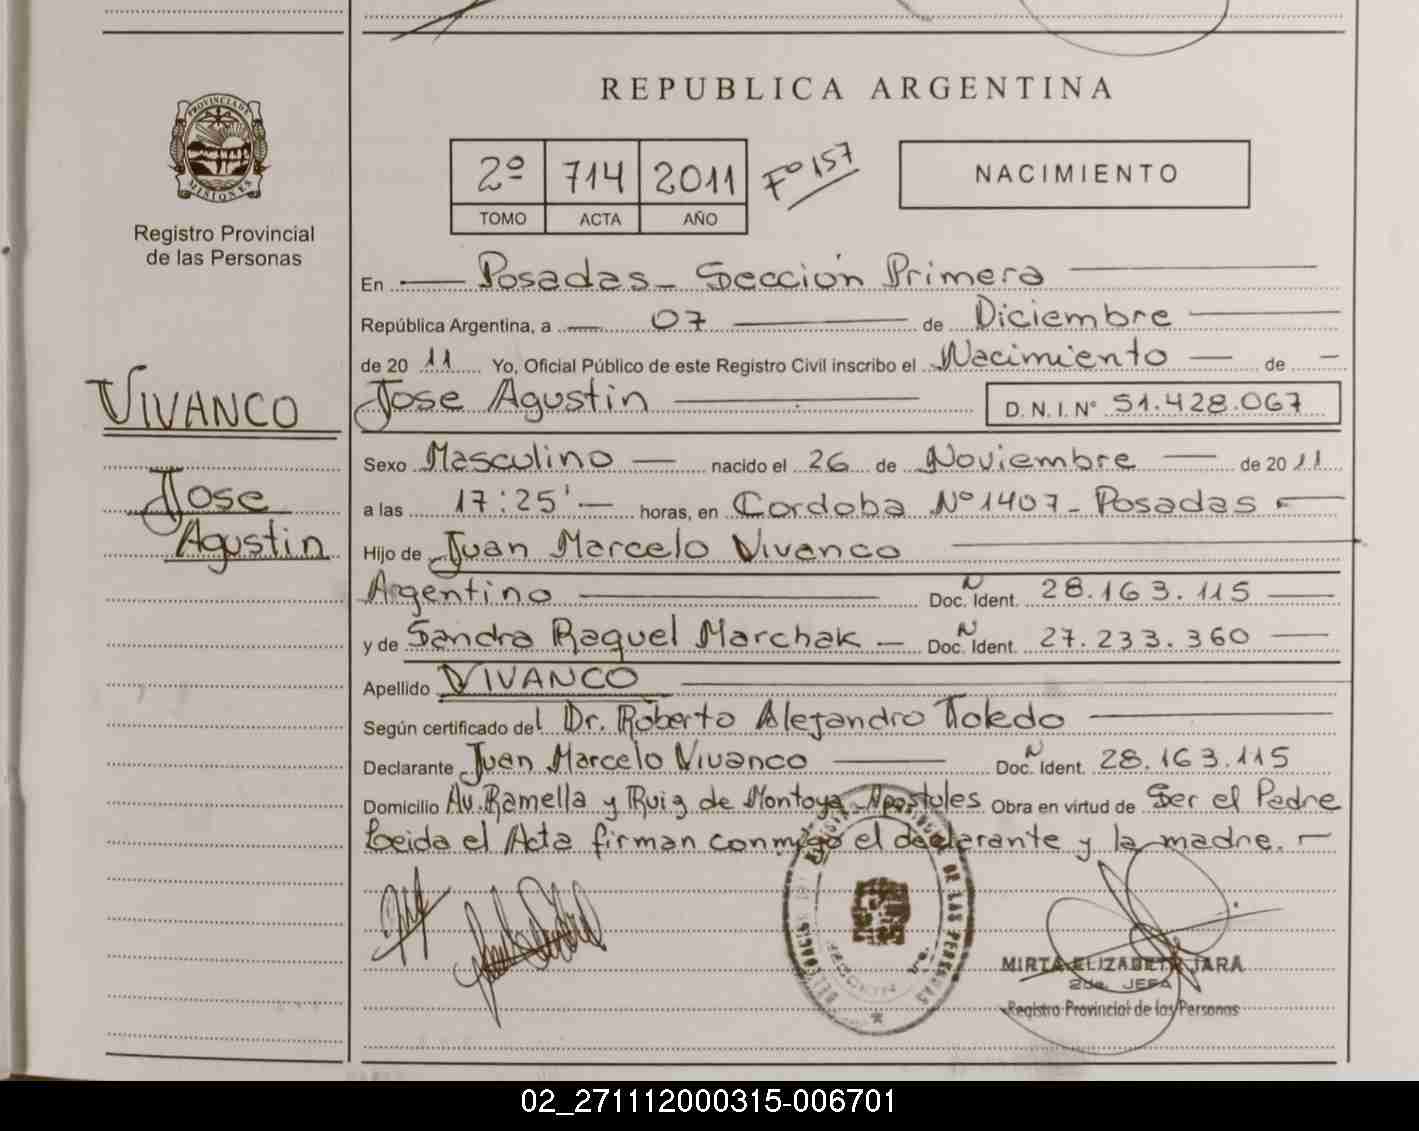 PROVINCIA DE
MISIONES
Registro Provincial
de las Personas
VIVANCO
Jose
Agustin
REPUBLICA ARGENTINA
2º 714 2011 Fº 157
TOMO ACTA AÑO
NACIMIENTO
En Posadas - Sección Primera
República Argentina, a 07 de Diciembre
de 2011 Yo, Oficial Público de este Registro Civil inscribo el Nacimiento de
Jose Agustin D.N.I. Nº 51.428.067
Sexo Masculino nacido el 26 de Noviembre de 2011
a las 17:25' horas, en Cordoba Nº 1407 - Posadas
Hijo de Juan Marcelo Vivanco
Argentino Doc. Ident. 28.163.115
y de Sandra Raquel Marchak Doc. Ident. 27.233.360
Apellido VIVANCO
Según certificado del Dr. Roberto Alejandro Toledo
Declarante Juan Marcelo Vivanco Doc. Ident. 28.163.115
Domicilio Av. Ramella y Ruiz de Montoya - Apostoles Obra en virtud de Ser el Padre
Leida el Acta firman conmigo el declarante y la madre.
DE LAS PERSONAS
MIRTA ELIZABETH JARA
2da. JEFA
Registro Provincial de las Personas
02_271112000315-006701